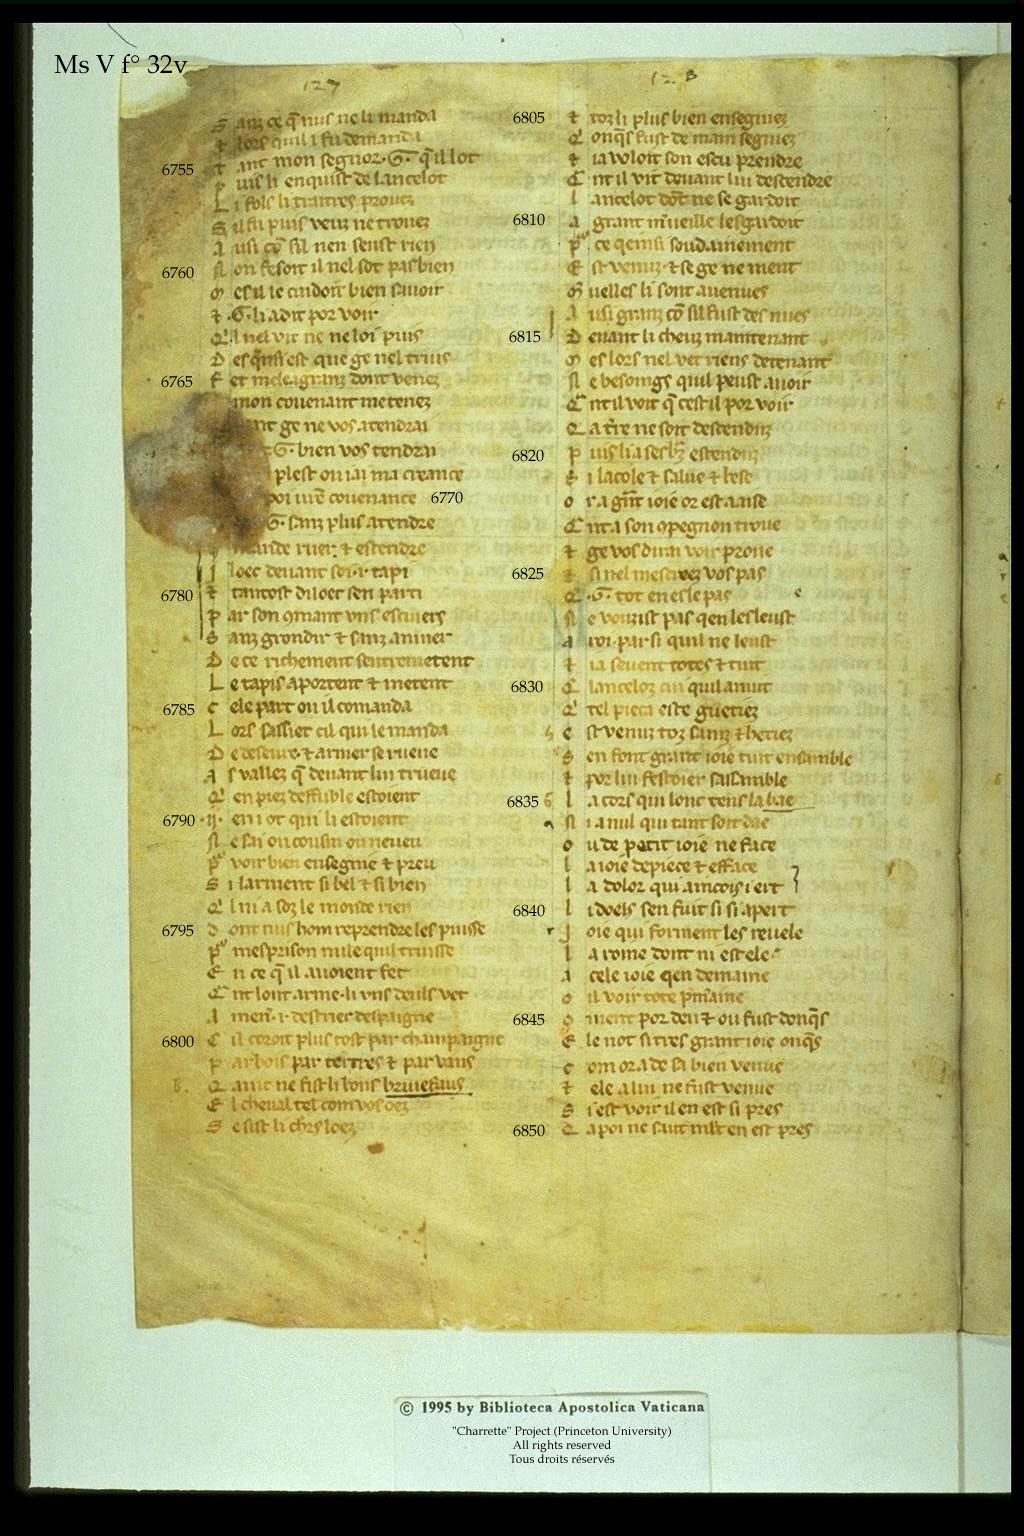 Ms V f° 32v
127
128
S anz ce q̃ nus ne li manda
t lors quil i fu demanda
6755 t ant mon segnor ·G· q̃ il lot
p uis li enquist de lancelot
L i fols li traitres prouez
S il fu puis veuz ne trouez
A usi cõ sil nen seust rien
6760 N on fesoit il nel sot pas bien
m es il le cuidoit bien sauoir
⁊ ·G· li a dit por voir
Q̉ l nel vit ne ne loi puis
D es q̃nsi est que ge nel truis
6765 F et meleaganz dont venez
mon couenant me tenez
ant ge ne vos atendrai
·G· bien vos tendrai
plest ou iai ma creance
poi urẽ couenance 6770
·G· sanz plus atendre
mande ruer ⁊ estendre
I loec deuant soi ·i· tapi
6780 ⁊ tantost diloec sen parti
P ar son 9mant uns escuiers
S anz grondir ⁊ sanz anuier
D e ce richement sentremetent
L e tapis aportent ⁊ metent
6785 C ele part ou il comanda
L ors sassiet cil qui le manda
D e deseure ⁊ armer se rueue
A s vallez q̃ deuant lui trueue
Q̉ en piez deffuble estoient
6790 ·ij· en i ot qui li estoient
N e sai ou cousin ou neueu
P̉ voir bien ensegnie ⁊ preu
S i larment si bel ⁊ si bien
Q̉ l ni a soz le monde rien
6795 D ont nus hom reprendre les puisse
P̉ mesprison nule quil truisse
E n ce q̃ il auoient fet
Q̃ nt lont arme li uns deuls vet
A mener ·i· destrier despaigne
6800 C il coroit plus tost par champaigne
P ar bois par tertres ⁊ par vaus
B. Q ainc ne fist li bons bruiefaus
E l cheual tel com vos oez
S e sist li chrs loez
6805 ⁊ toz li plus bien ensegniez
Q̉ onqs fust de main segniez
⁊ ia voloit son escu prendre
Q̃ nt il vit deuant lui descendre
L ancelot dõt ne se gardoit
6810 A grant mueille lesgardoit
P̉ ce qensi soudainement
E st venuz ⁊ se ge ne ment
M̉ uelles li sont auenues
A usi granz cõ sil fust des nues
6815 D euant li cheuz maintenant
m es lors nel vet riens detenant
N e besoings quil peust auoir
Q̃ nt il voit q̃ cest il por voir
Q a tr̃e ne soit descenduz
6820 P uis li a ses brz estenduz
S i lacole ⁊ salue ⁊ bese
O r a grãt ioie or est a aise
Q̃ nt a son 9pegnon troue
⁊ ge vos dirai voir proue
6825 ⁊ si nel mescreez vos pas
Q̉ ·G· tot en es le pas
N e vouzist pas qen lesleust
A roi par si quil ne leust
⁊ ia seuent totes ⁊ tuit
6830 Q̉ lanceloz cui quil anuit
Q̉ tel pieca este guetiez
E st venuz toz sainz ⁊ hetiez
S en font grant ioie tuit ensamble
⁊ por lui festoier sasamble
6835 L a corz qui lonc tens la bae
N i a nul qui tant soit dae
O u de petit ioie ne face
L a ioie depiece ⁊ efface
L a dolor qui aincois i ert
6840 L i doels sen fuit si si apert
J oie qui forment les reuele
L a roine dont ni est ele
A cele ioie qen demaine
O il voir tote pmaine
6845 9 ment por deu ⁊ ou fust donqs
E le not si tres grant ioie onqs
C om or a de sa bien venue
⁊ ele a lui ne fust venue
S i est voir il en est si pres
6850 Q a poi ne saut mlt en est pres
© 1995 by Biblioteca Apostolica Vaticana
"Charrette" Project (Princeton University)
All rights reserved
Tous droits réservés